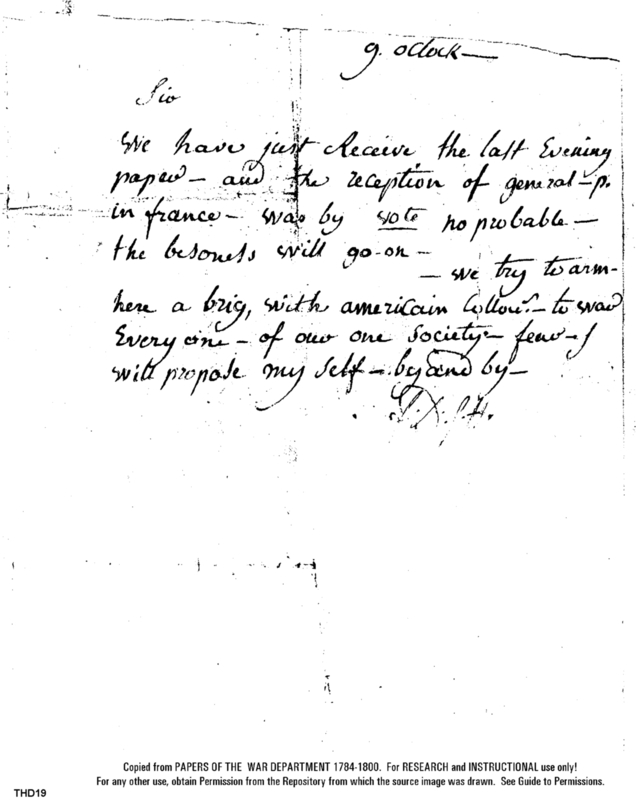 9. oclock —
Sir
we have just Receive the last Evening
paper — and the reception of general – p.
in france — was by vote no probable —
the besoness will go-on —
— we try to arm-
here a brig, with americain Collour. — to war
Every one — of our one society — few – J
will propose my self — by and by —
Copied from PAPERS OF THE WAR DEPARTMENT 1784-1800. For RESEARCH and INSTRUCTIONAL use only!
For any other use, obtain Permission from the Repository from which the source image was drawn. See Guide to Permissions.
THD19